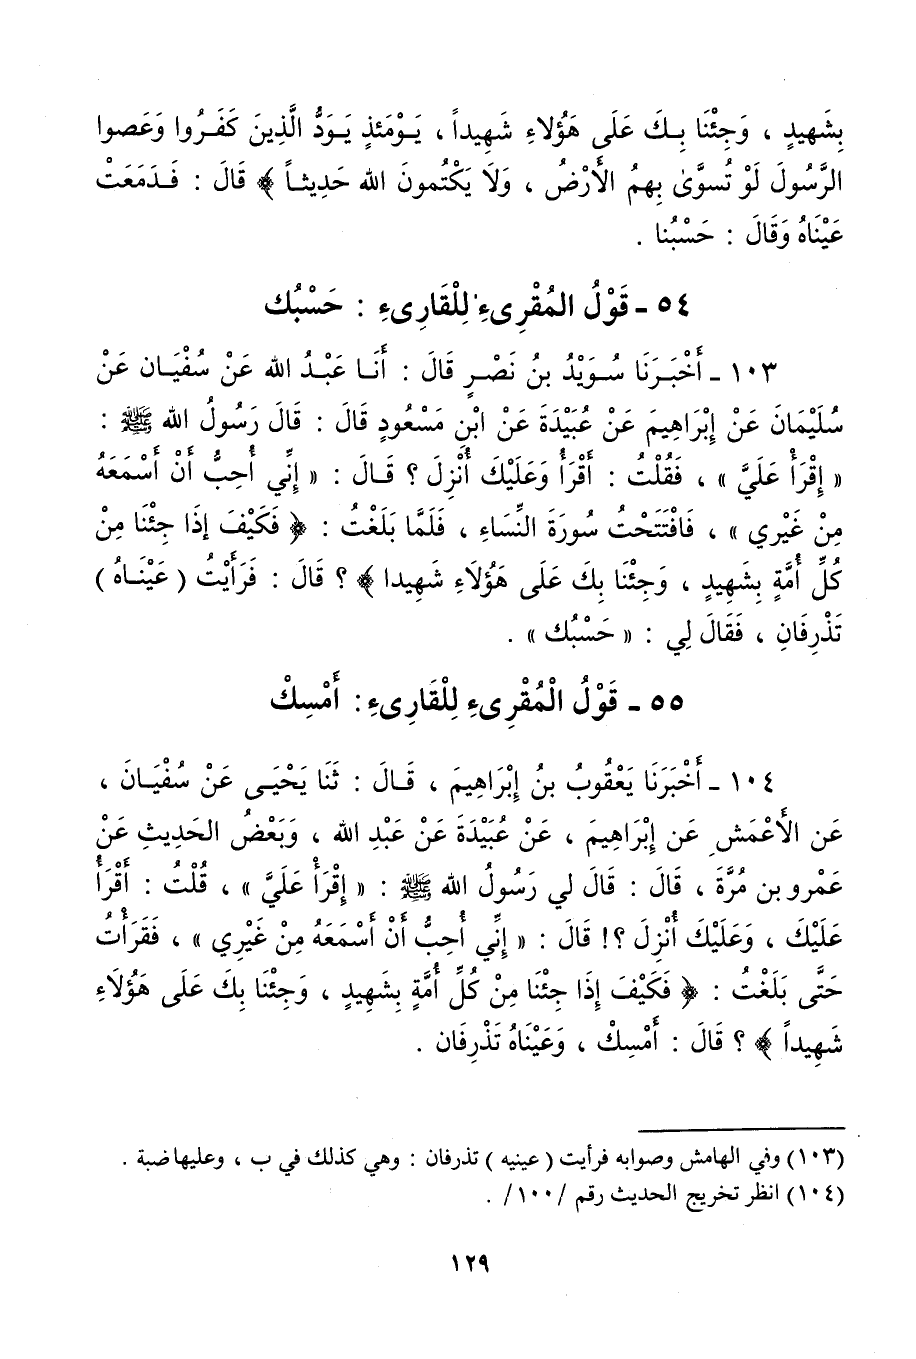 بِشَهيدٍ ، وَجِئْنَا بِـكَ عَلَى هَؤُلاءِ شَهِيداً ، يَـوْمَئذٍ يَـوَدُّ الَّذِينَ كَفَـرُوا وَعَصوا
الرَّسُولَ لَوْ تُسوَّىٰ بِهِمُ الأَرْضُ ، وَلَا يَكْتُمونَ الله حَدِيثـاً ﴾ قَالَ : فَـدَمَعَتْ
عَيْنَاهُ وَقَالَ : حَسْبُنا .
٥٤ - قَوْلُ المُقْرِىءِ لِلْقَارِىءِ : حَسْبُك
١٠٣ - أَخْبَـرَنَا سُـوَيْدُ بنُ نَصْـرٍ قَالَ : أَنَـا عَبْـدُ الله عَنْ سُفْيَـان عَنْ
سُلَيْمَانَ عَنْ إِبْرَاهِيمَ عَنْ عُبَيْدَةَ عَنْ ابْنِ مَسْعُودٍ قَالَ : قَالَ رَسُولُ الله ﷺ :
« إِقْرَأْ عَلَيَّ » ، فَقُلْتُ : أَقْرَأُ وَعَلَيْكَ أُنْزِلَ ؟ قَـالَ : « إِنِّي أُحِبُّ أَنْ أَسْمَعَهُ
مِنْ غَيْرِي » ، فَافْتَتَحْتُ سُورَةَ النِّسَاءِ ، فَلَمَّا بَلَغْتُ : ﴿ فَكَيْفَ إذَا جِئْنَا مِنْ
كُلِّ أُمَّةٍ بِشَهِيدٍ ، وَجِئْنَا بِكَ عَلَى هَؤُلَاءِ شَهِيدا ﴾ ؟ قَالَ : فَرَأَيْتُ ( عَيْنَـاهُ )
تَذْرِفَانِ ، فَقَالَ لِي : « حَسْبُك » .
٥٥ - قَوْلُ الْمُقْرِىءِ لِلْقَارِىءِ: أَمْسِكْ
١٠٤ - أَخْبَرَنَا يَعْقُوبُ بنُ إِبْرَاهِيمَ ، قَـالَ : ثَنَا يَحْيَـى عَنْ سُفْيَـانَ ،
عَنِ الأَعْمَشِ عَن إِبْرَاهِيمَ ، عَنْ عُبَيْدَةَ عَنْ عَبْدِ الله ، وَبَعْضُ الحَدِيثِ عَنْ
عَمْرو بن مُرَّةَ ، قَالَ : قَالَ لي رَسُولُ الله ﷺ : « إِقْرَأْ عَلَيَّ » ، قُلْتُ : أَقْرَأُ
عَلَيْكَ ، وَعَلَيْكَ أُنْزِلَ ؟! قَالَ : « إِنِّي أُحِبُّ أَنْ أَسْمَعَهُ مِنْ غَيْرِي » ، فَقَرَأْتُ
حَتَّى بَلَغْتُ : ﴿ فَكَيْفَ إِذَا جِئْنَا مِنْ كُلِّ أُمَّةٍ بِشَهِيدٍ ، وَجِئْنَا بِكَ عَلَى هَؤُلَاءِ
شَهِيداً ﴾ ؟ قَالَ : أَمْسِكْ ، وَعَيْنَاهُ تَذْرِفَان .
(١٠٣) وفي الهامش وصوابه فرأيت ( عينيه ) تذرفان : وهي كذلك في ب ، وعليها ضبة .
(١٠٤) انظر تخريج الحديث رقم /١٠٠/ .
١٢٩